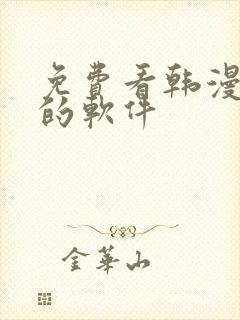 免費看韩漫
的軟件
金華山